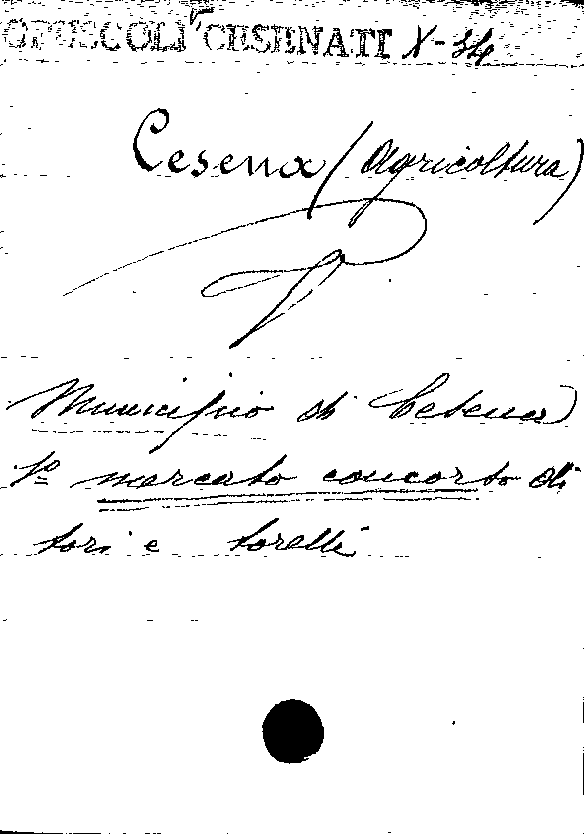 OPUSCOLI CESENATI X-34
Cesena (Agricoltura)
V
Municipio di Cesena
1º mercato concorso di
tori e torelli